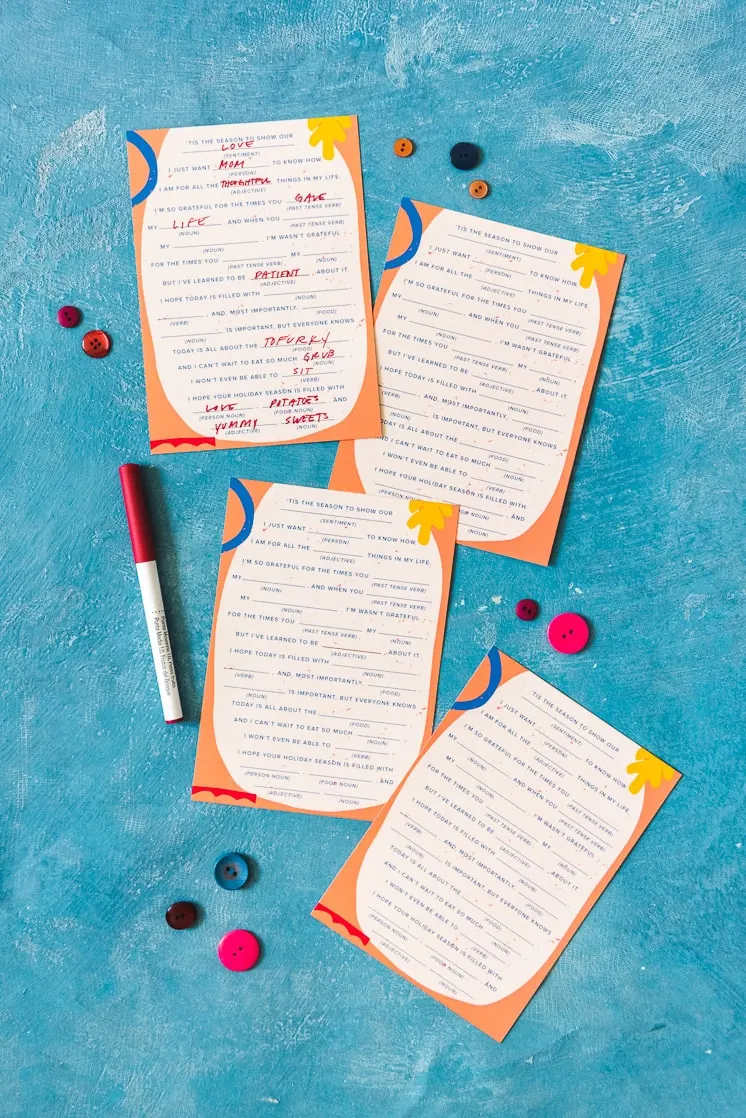 'TIS THE SEASON TO SHOW OUR
LOVE
(SENTIMENT)
I JUST WANT MOM TO KNOW HOW
(PERSON)
I AM FOR ALL THE THOUGHTFUL THINGS IN MY LIFE.
(ADJECTIVE)
I'M SO GRATEFUL FOR THE TIMES YOU GAVE
(PAST TENSE VERB)
MY LIFE, AND WHEN YOU
(NOUN) (PAST TENSE VERB)
MY . I'M WASN'T GRATEFUL
(NOUN)
FOR THE TIMES YOU MY
(PAST TENSE VERB) (NOUN)
BUT I'VE LEARNED TO BE PATIENT ABOUT IT.
(ADJECTIVE)
I HOPE TODAY IS FILLED WITH
(NOUN)
, AND, MOST IMPORTANTLY,
(VERB) (FOOD)
IS IMPORTANT, BUT EVERYONE KNOWS
(NOUN)
TODAY IS ALL ABOUT THE TOFURKY
(FOOD)
AND I CAN'T WAIT TO EAT SO MUCH GRUB
(NOUN)
I WON'T EVEN BE ABLE TO SIT
(VERB)
I HOPE YOUR HOLIDAY SEASON IS FILLED WITH
LOVE POTATOES AND
(PERSON NOUN) (FOOD NOUN)
YUMMY SWEETS
(ADJECTIVE) (NOUN)
'TIS THE SEASON TO SHOW OUR
(SENTIMENT)
I JUST WANT TO KNOW HOW
(PERSON)
I AM FOR ALL THE THINGS IN MY LIFE.
(ADJECTIVE)
I'M SO GRATEFUL FOR THE TIMES YOU
(PAST TENSE VERB)
MY , AND WHEN YOU
(NOUN) (PAST TENSE VERB)
MY . I'M WASN'T GRATEFUL
(NOUN)
FOR THE TIMES YOU MY
(PAST TENSE VERB) (NOUN)
BUT I'VE LEARNED TO BE ABOUT IT.
(ADJECTIVE)
I HOPE TODAY IS FILLED WITH
(NOUN)
, AND, MOST IMPORTANTLY,
(FOOD)
IS IMPORTANT, BUT EVERYONE KNOWS
TODAY IS ALL ABOUT THE
(FOOD)
AND I CAN'T WAIT TO EAT SO MUCH
(NOUN)
I WON'T EVEN BE ABLE TO
(VERB)
I HOPE YOUR HOLIDAY SEASON IS FILLED WITH
AND
NOUN)
(NOUN)
'TIS THE SEASON TO SHOW OUR
(SENTIMENT)
I JUST WANT TO KNOW HOW
(PERSON)
I AM FOR ALL THE THINGS IN MY LIFE.
(ADJECTIVE)
I'M SO GRATEFUL FOR THE TIMES YOU
(PAST TENSE VERB)
MY , AND WHEN YOU
(NOUN) (PAST TENSE VERB)
MY . I'M WASN'T GRATEFUL
(NOUN)
FOR THE TIMES YOU MY
(PAST TENSE VERB) (NOUN)
BUT I'VE LEARNED TO BE ABOUT IT.
(ADJECTIVE)
I HOPE TODAY IS FILLED WITH
(NOUN)
, AND, MOST IMPORTANTLY,
(VERB) (FOOD)
IS IMPORTANT, BUT EVERYONE KNOWS
(NOUN)
TODAY IS ALL ABOUT THE
(FOOD)
AND I CAN'T WAIT TO EAT SO MUCH
(NOUN)
I WON'T EVEN BE ABLE TO
(VERB)
I HOPE YOUR HOLIDAY SEASON IS FILLED WITH
AND
(PERSON NOUN) (FOOD NOUN)
(ADJECTIVE) (NOUN)
'TIS THE SEASON TO SHOW OUR
(SENTIMENT)
I JUST WANT TO KNOW HOW
(PERSON)
I AM FOR ALL THE THINGS IN MY LIFE.
(ADJECTIVE)
I'M SO GRATEFUL FOR THE TIMES YOU
(PAST TENSE VERB)
MY , AND WHEN YOU
(NOUN) (PAST TENSE VERB)
MY . I'M WASN'T GRATEFUL
(NOUN)
FOR THE TIMES YOU MY
(PAST TENSE VERB) (NOUN)
BUT I'VE LEARNED TO BE ABOUT IT.
(ADJECTIVE)
I HOPE TODAY IS FILLED WITH
(NOUN)
, AND, MOST IMPORTANTLY,
(VERB) (FOOD)
IS IMPORTANT, BUT EVERYONE KNOWS
(NOUN)
TODAY IS ALL ABOUT THE
(FOOD)
AND I CAN'T WAIT TO EAT SO MUCH
(NOUN)
I WON'T EVEN BE ABLE TO
(VERB)
I HOPE YOUR HOLIDAY SEASON IS FILLED WITH
AND
(PERSON NOUN) (FOOD NOUN)
(ADJECTIVE) (NOUN)